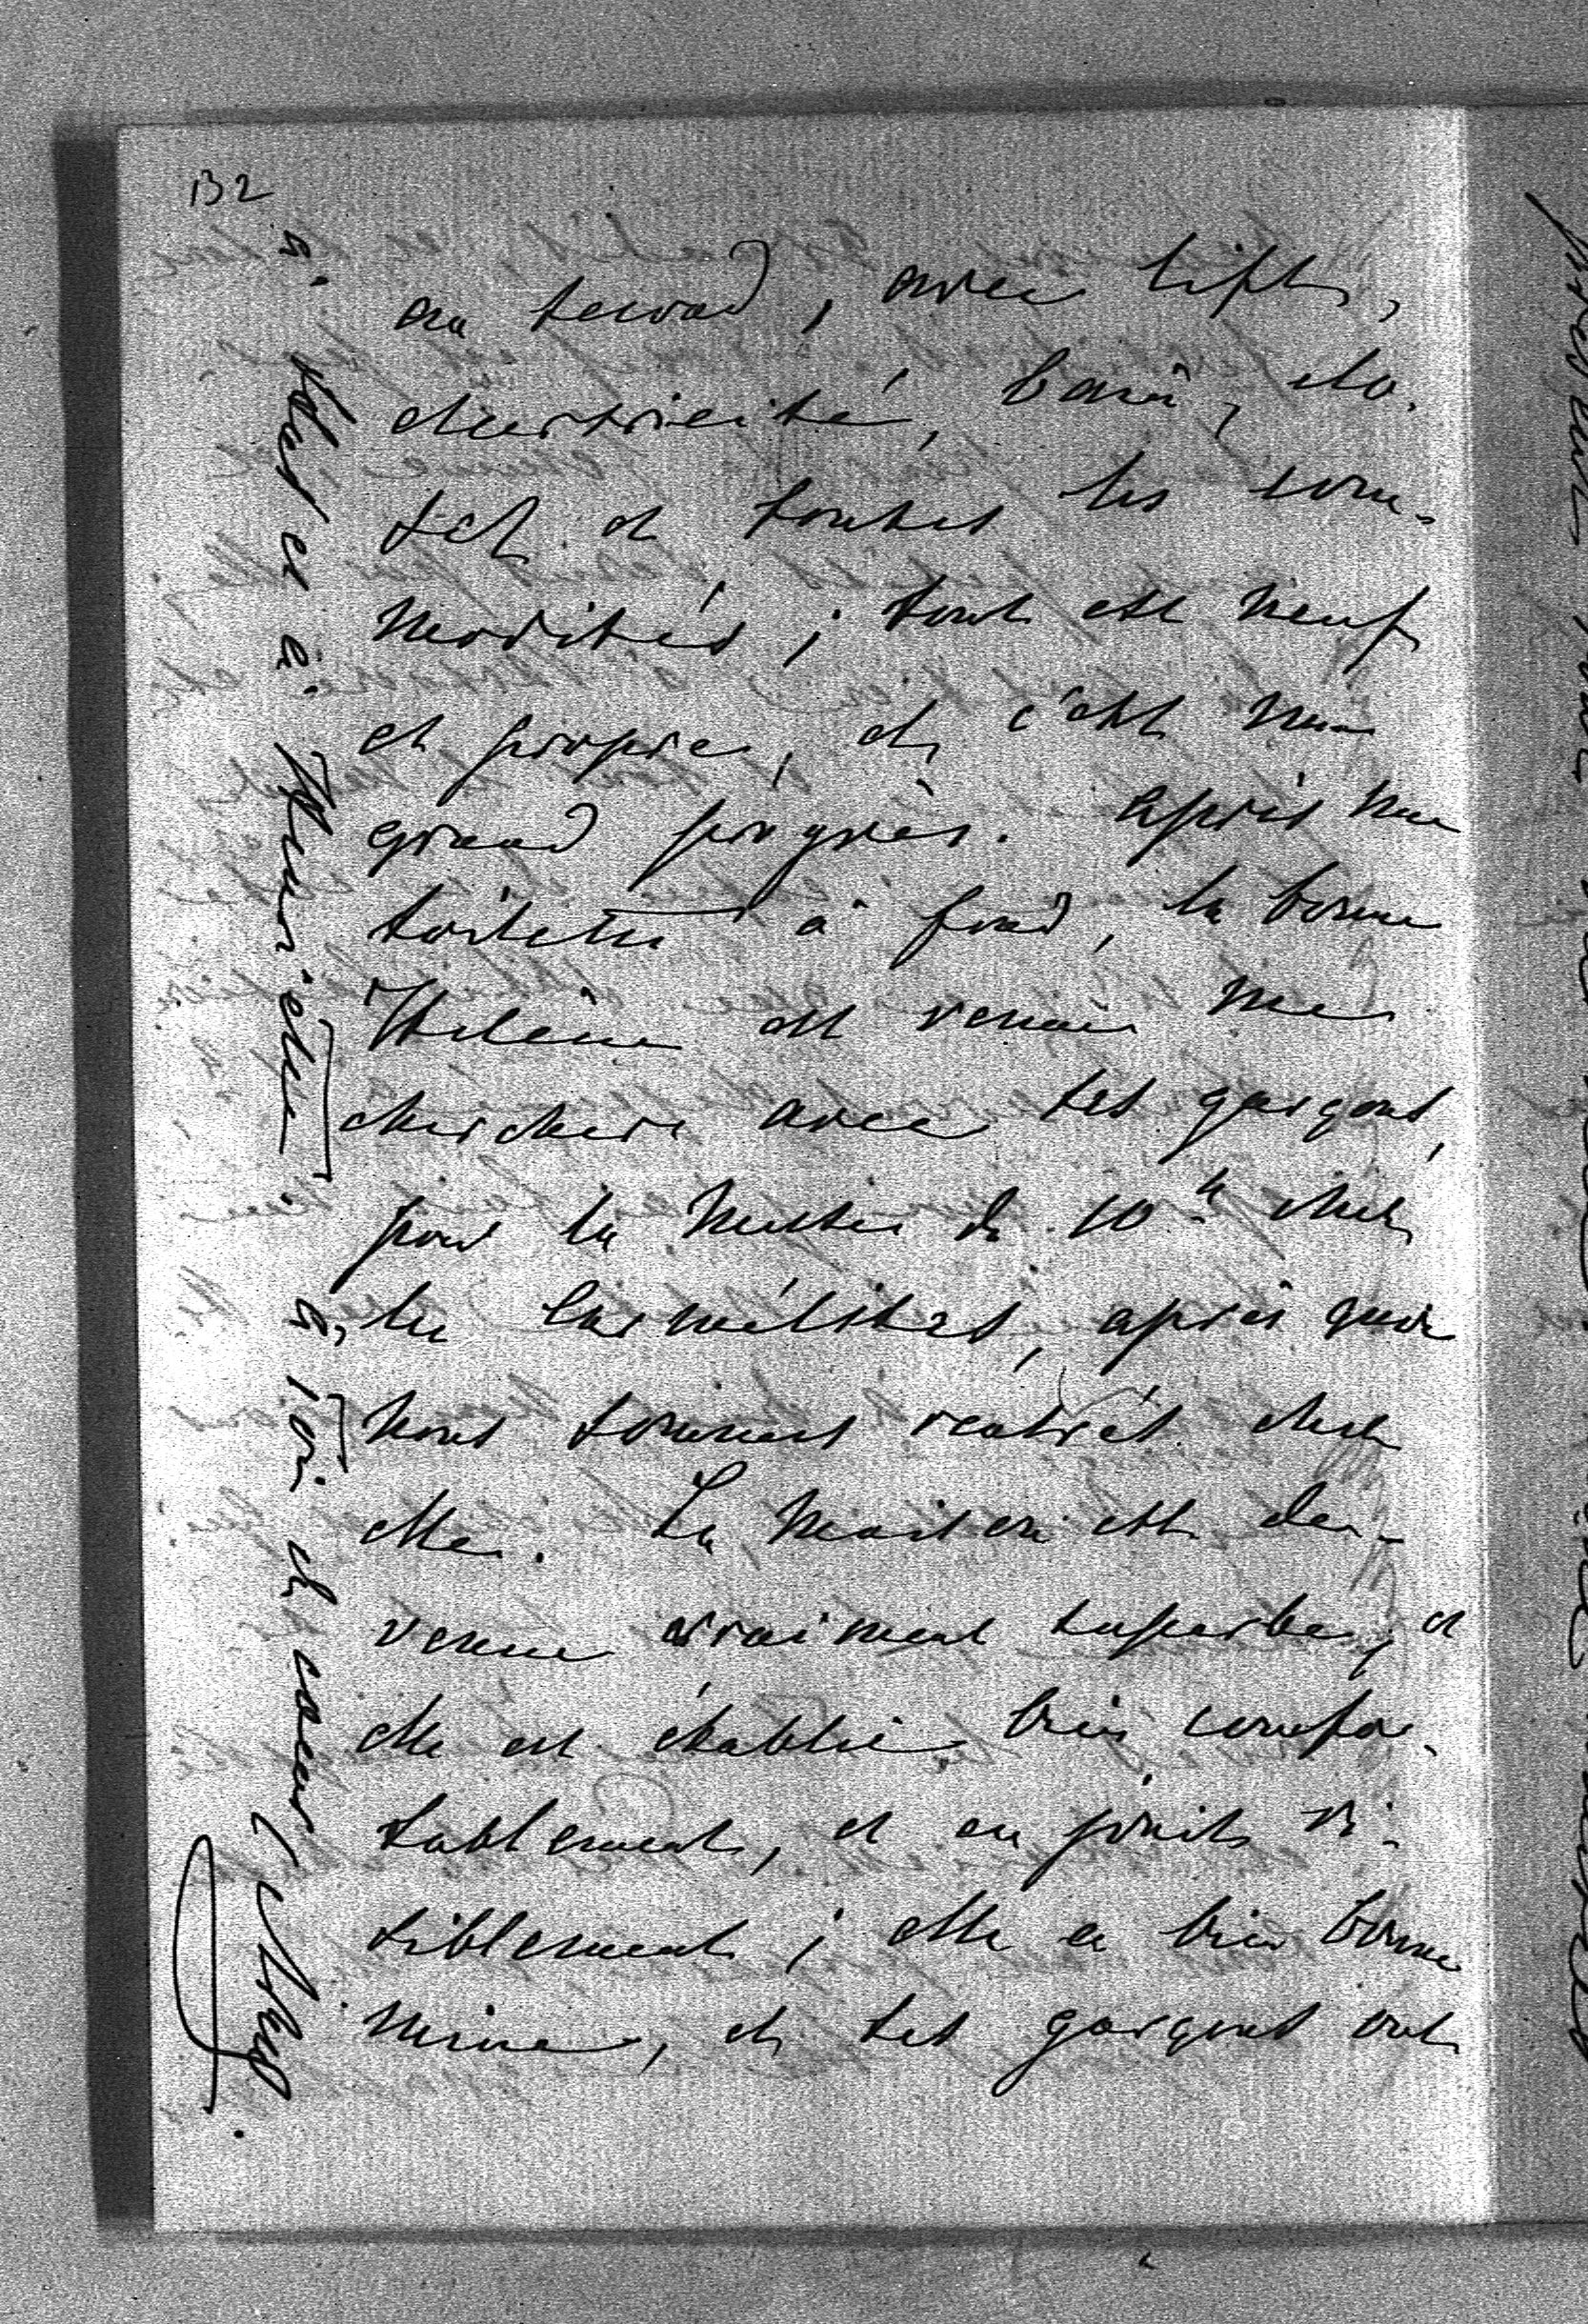 132
au second, avec lift,
électricité, bain, clo-
set et toutes les com-
modités ; tout est neuf
et propre, et c'est un
grand progrès. Après une
toilette à fond, la bonne
Hélène est venue me
chercher avec ses garçons,
pour la messe de 10 h chez
les Carmélites, après quoi
nous sommes rentrés chez
elle. La maison est de-
venue vraiment superbe, et
elle est établie bien confor-
tablement, et en jouit vi-
siblement ; elle a bien bonne
mine, et ses garçons ont
à et à Henriette, à toi de cœur